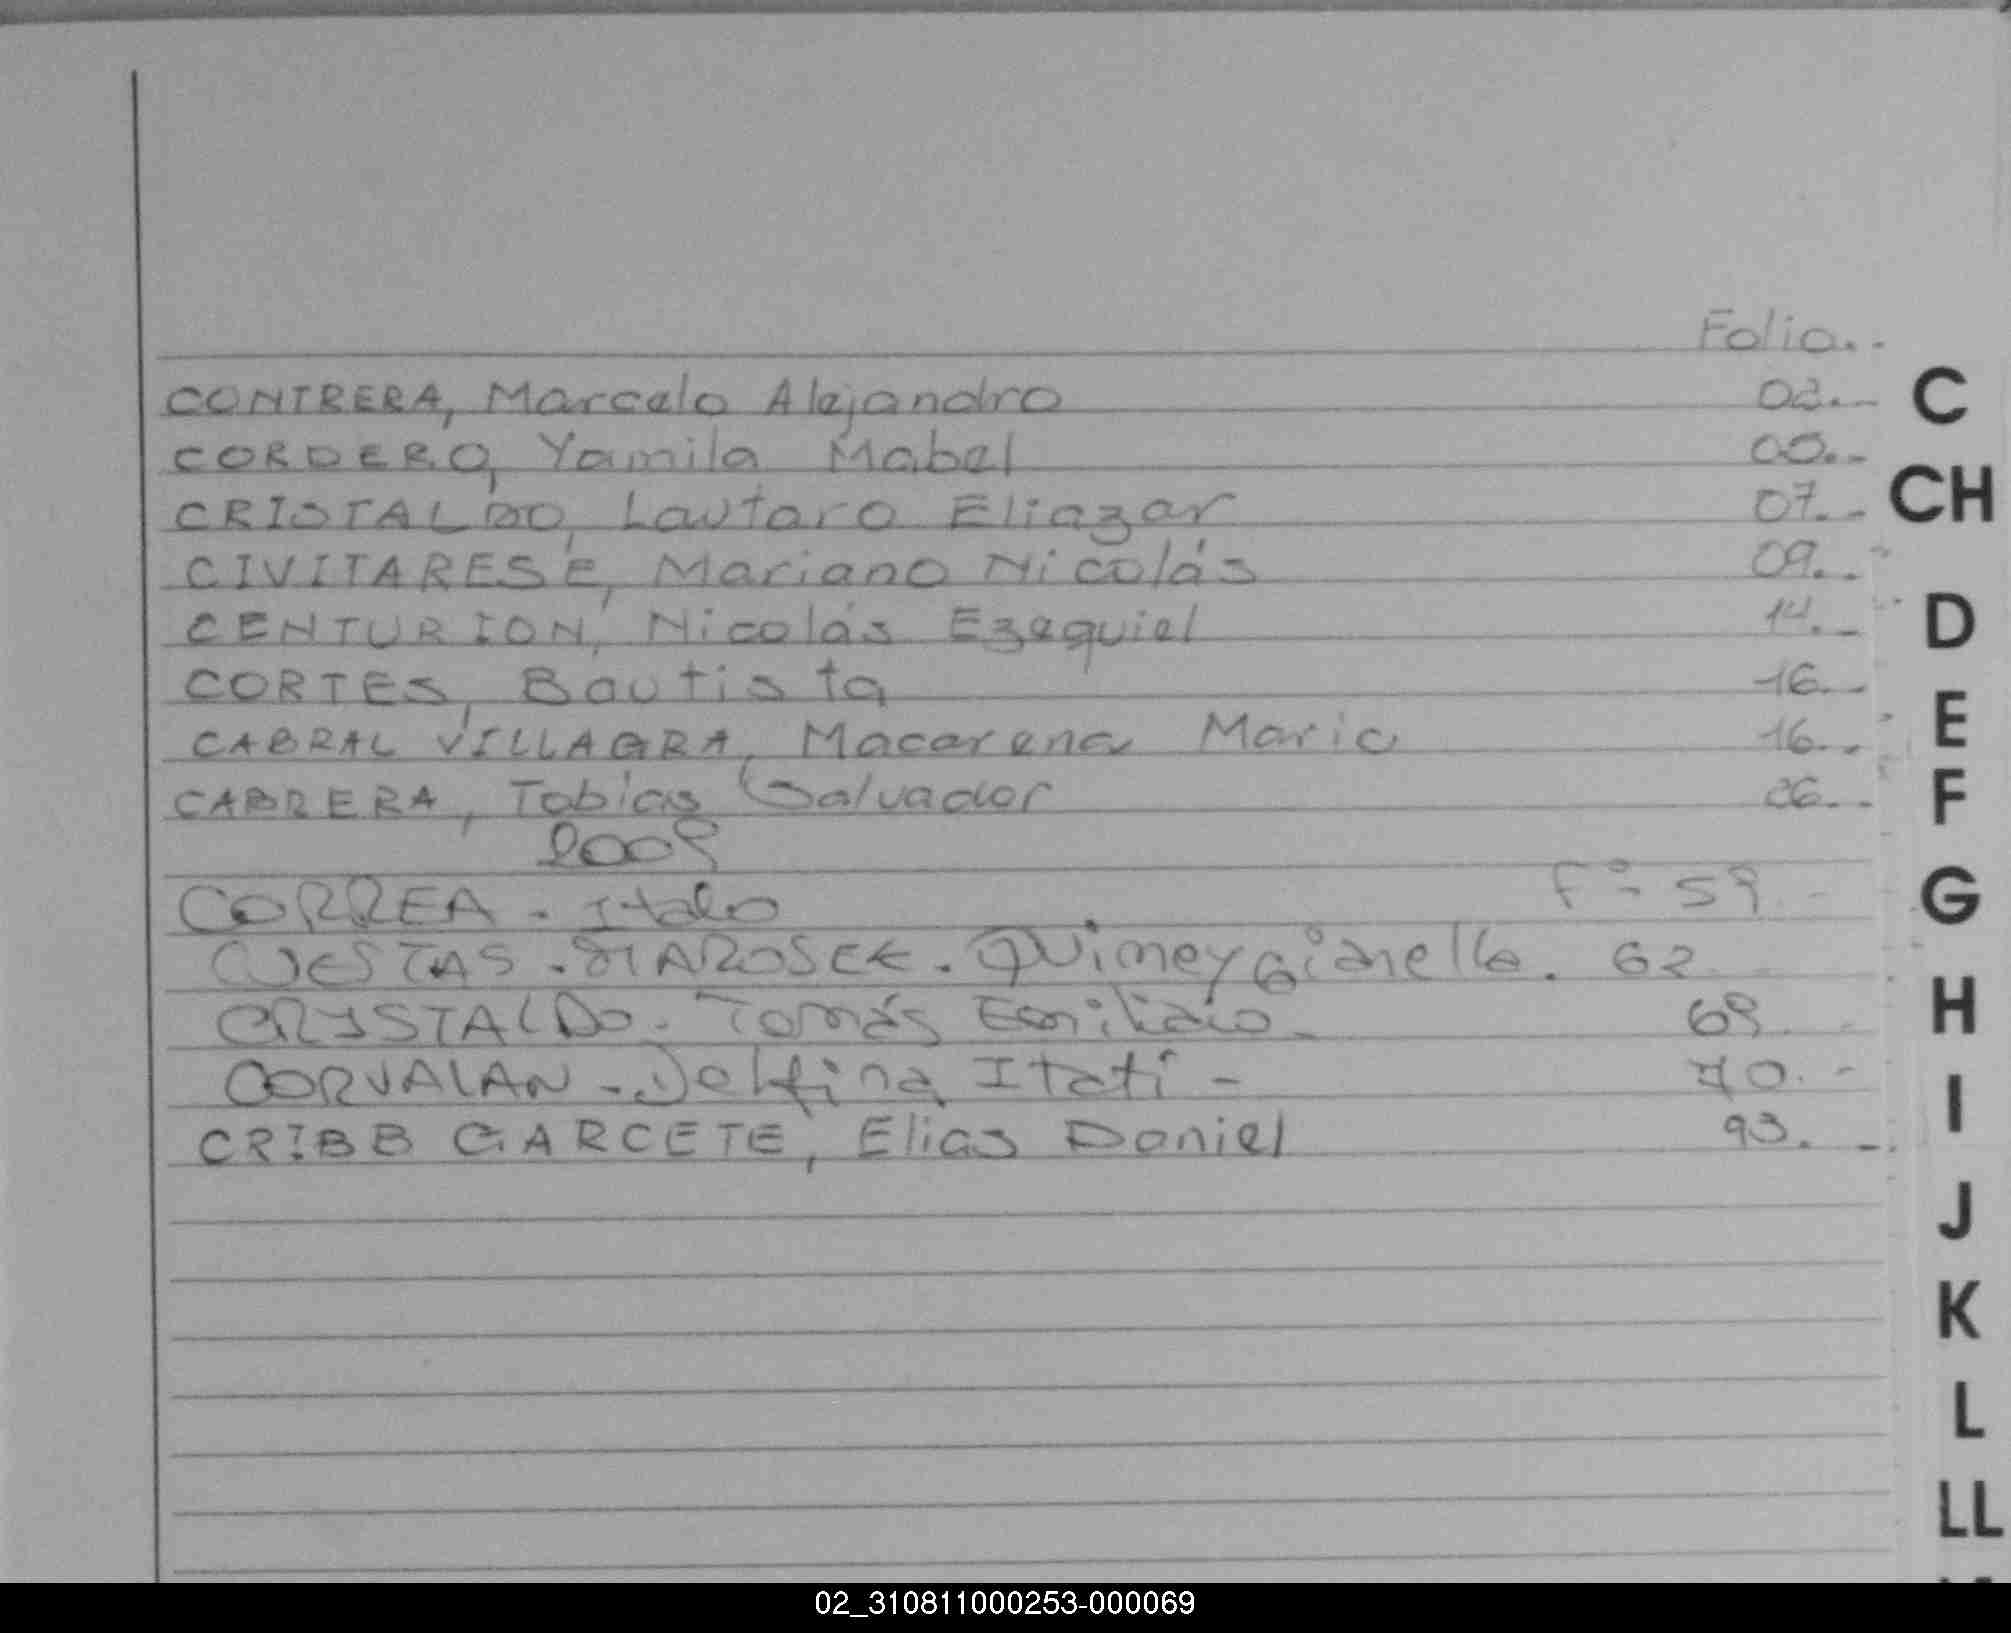 Folio..
CONTRERA, Marcelo Alejandro 02.-
C
CORDERO, Yamila Mabel 00.-
CH
CRISTALDO, Lautaro Eliazar 07.-
CIVITARESE, Mariano Nicolás 09.-
CENTURION, Nicolás Ezequiel 14.-
D
CORTES, Bautista 16.-
E
CABRAL VILLAGRA, Macarena Maria 16.-
CABRERA, Tobias Salvador 26.-
F
2009
CORREA - Italo Fº 59
G
CUESTAS - Quimey Gianella. 62
CRYSTALDO - Tomás Emiliano - 69
H
CORVALAN - Delfina Itati - 70.-
I
CRIBB GARCETE, Elias Daniel 93.-
J
K
L
LL
02_310811000253-000069